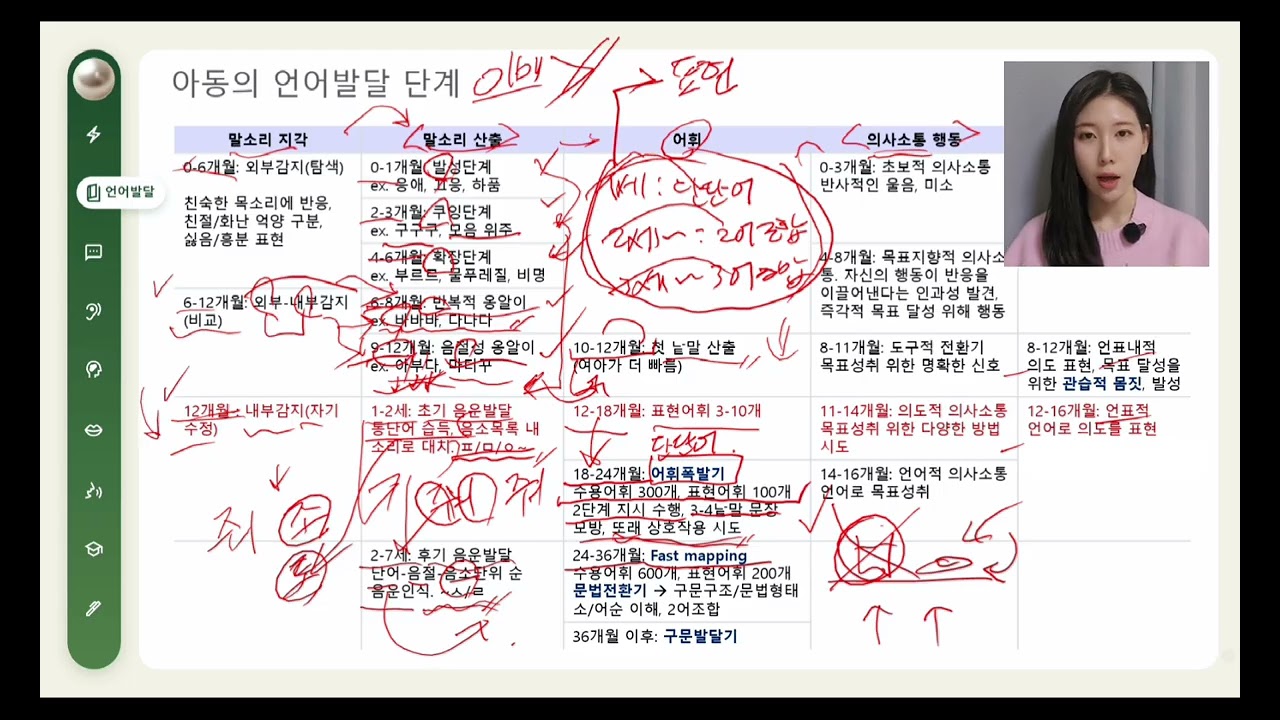 아동의 언어발달 단계
이해
표현
언어발달
말소리 지각
0-6개월: 외부감지(탐색)
친숙한 목소리에 반응,
친절/화난 억양 구분,
싫음/흥분 표현
6-12개월: 외부-내부감지
(비교)
12개월: 내부감지(자기
수정)
말소리 산출
0-1개월: 발성단계
ex. 응애, 끄응, 하품
2-3개월: 쿠잉단계
ex. 구구구, 모음 위주
4-6개월: 확장단계
ex. 부르르, 물푸레질, 비명
6-8개월: 반복적 옹알이
ex. 바바바, 다나다
9-12개월: 음절성 옹알이
ex. 아부다, 마더꾸
1-2세: 초기 음운발달
통단어 습득, 음소목록 내
소리로 대치. ㅍ/ㅁ/ㅇ~
2-7세: 후기 음운발달
단어-음절-음소단위 순
음운인식. ~ㅅ/ㄹ
어휘
1세: 단단어
2세~: 2어조합
3세~ 3어조합
10-12개월: 첫 낱말 산출
(여아가 더 빠름)
12-18개월: 표현어휘 3-10개
단단어
18-24개월: 어휘폭발기
수용어휘 300개, 표현어휘 100개
2단계 지시 수행, 3-4낱말 문장
모방, 또래 상호작용 시도
24-36개월: Fast mapping
수용어휘 600개, 표현어휘 200개
문법전환기 → 구문구조/문법형태
소/어순 이해, 2어조합
36개월 이후: 구문발달기
의사소통 행동
0-3개월: 초보적 의사소통
반사적인 울음, 미소
4-8개월: 목표지향적 의사소
통. 자신의 행동이 반응을
이끌어낸다는 인과성 발견,
즉각적 목표 달성 위해 행동
8-11개월: 도구적 전환기
목표성취 위한 명확한 신호
11-14개월: 의도적 의사소통
목표성취 위한 다양한 방법
시도
14-16개월: 언어적 의사소통
언어로 목표성취
8-12개월: 언표내적
의도 표현, 목표 달성을
위한 관습적 몸짓, 발성
12-16개월: 언표적
언어로 의도를 표현